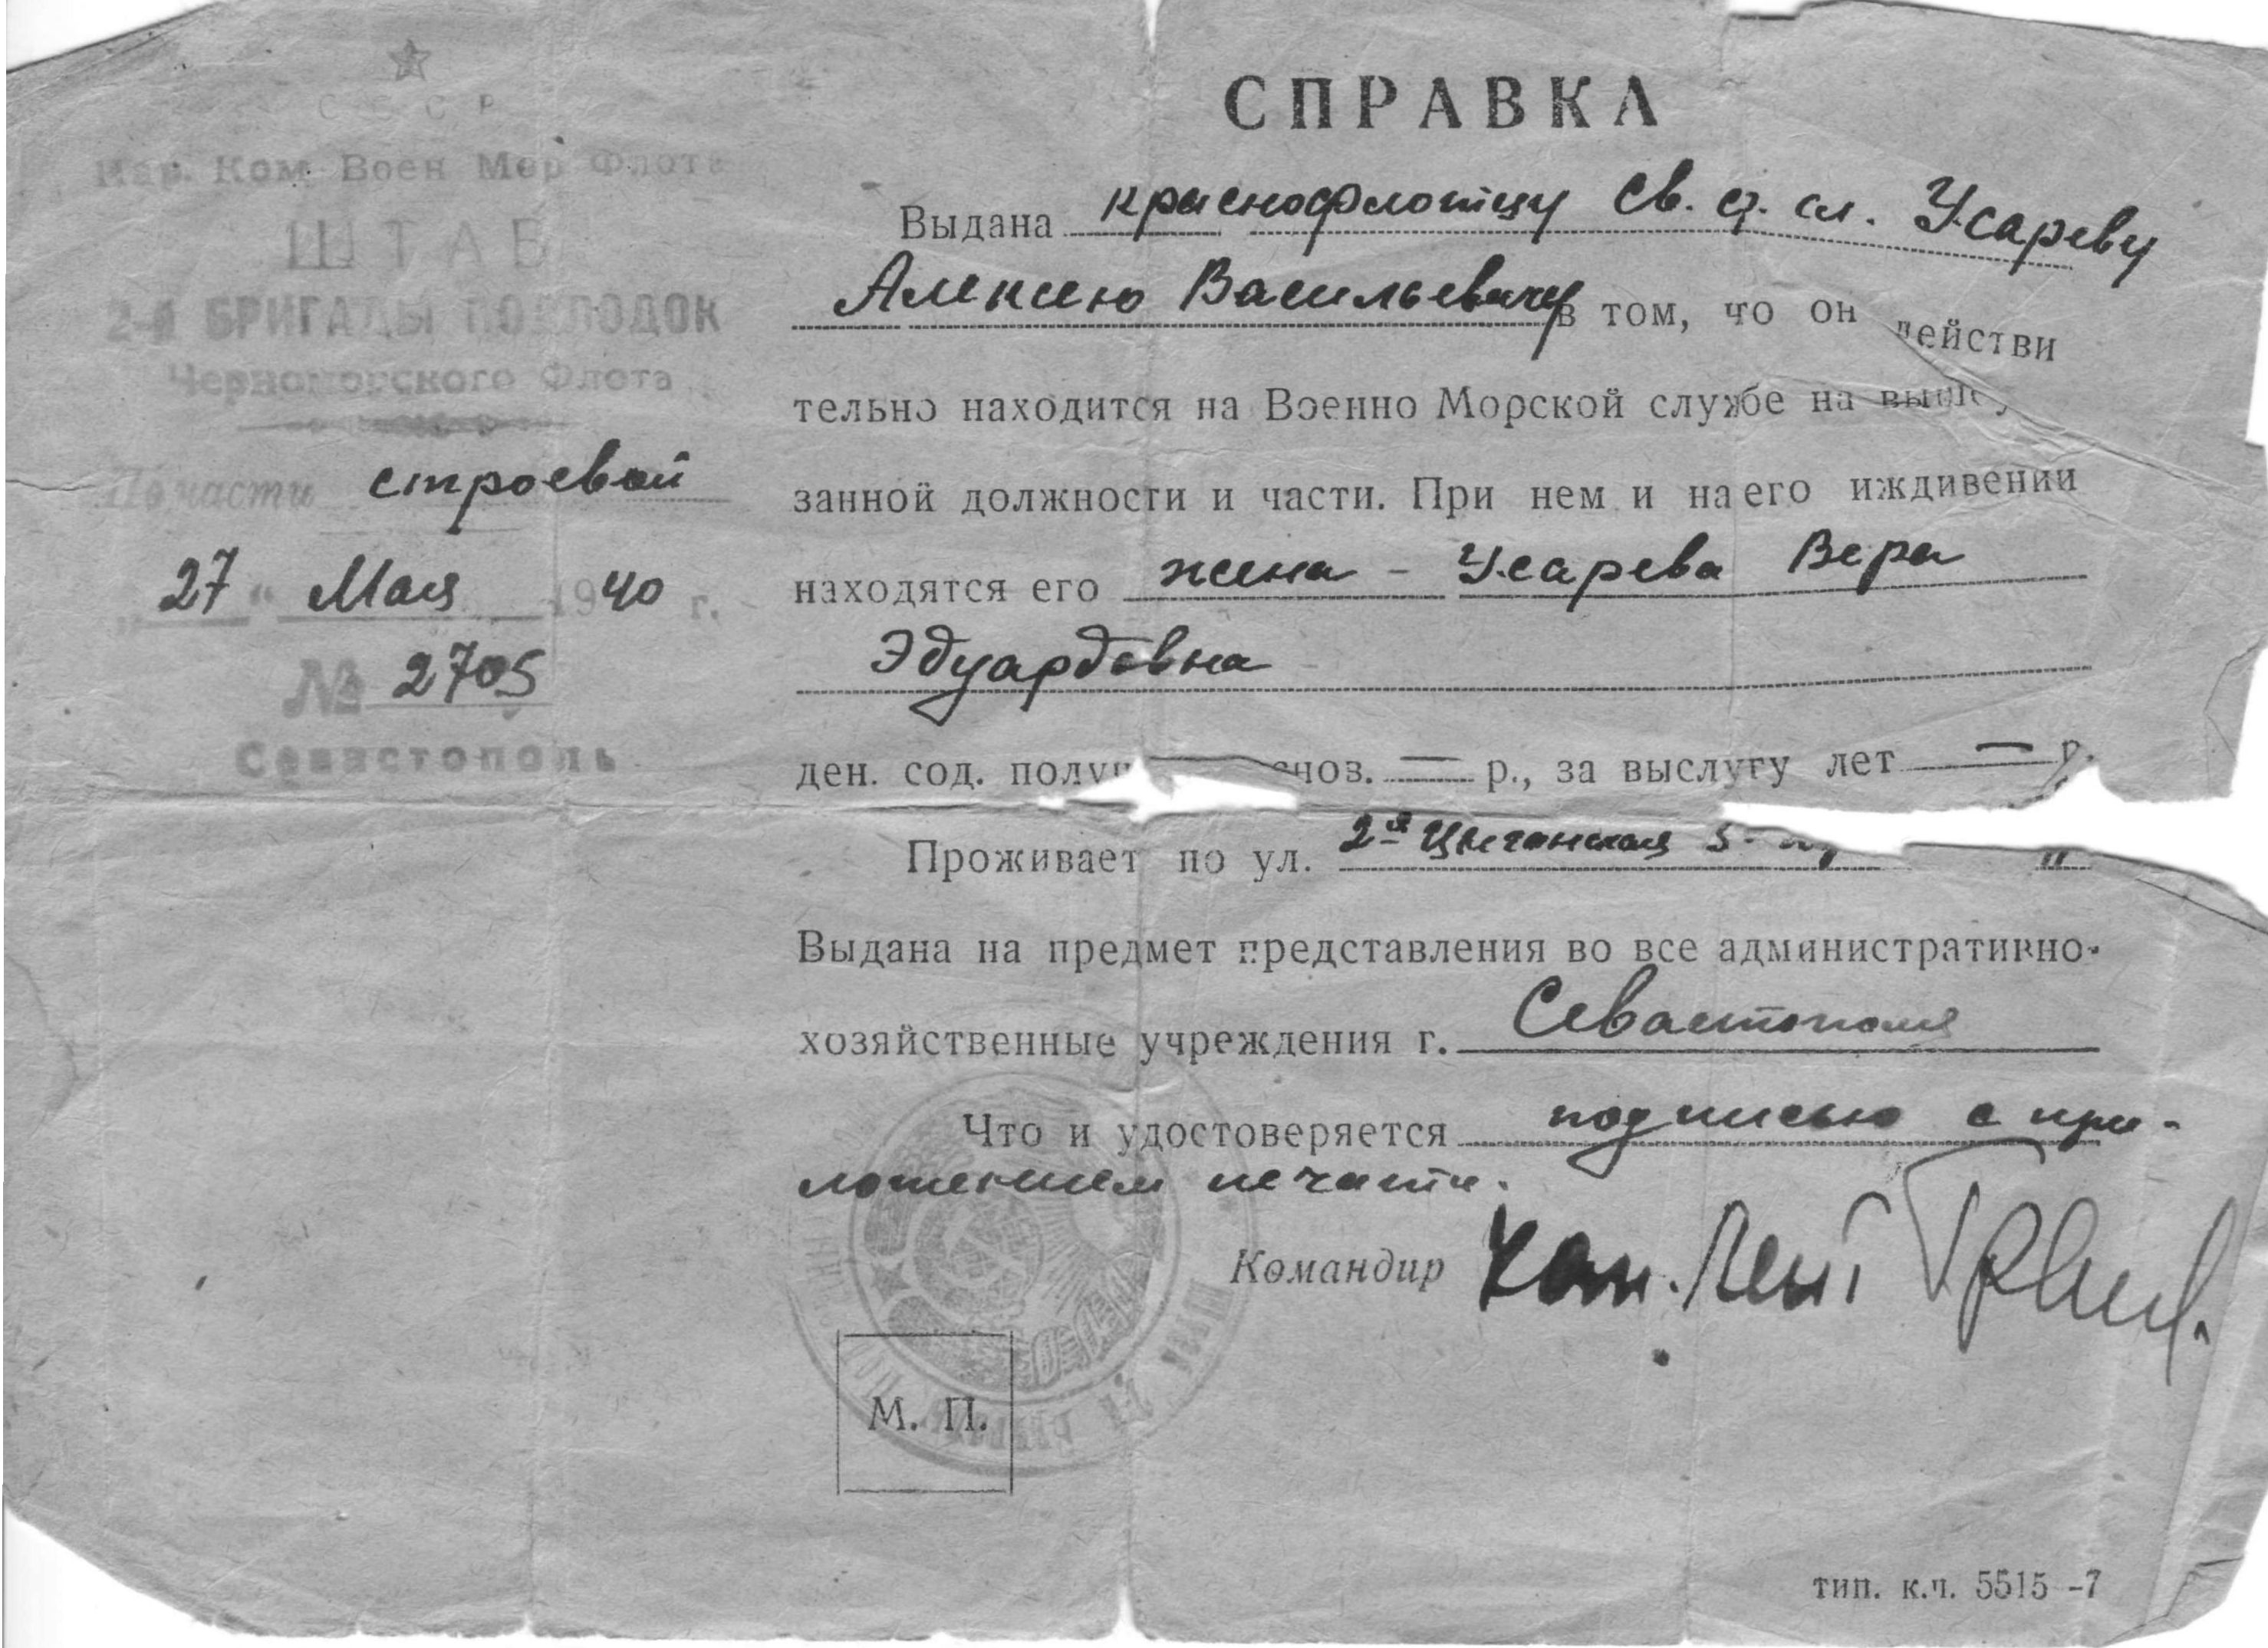 СССР
Нар. Ком. Воен Мор Флота
ШТАБ
2-й БРИГАДЫ ПОДЛОДОК
Черноморского Флота
По части строевой
„27“ Мая 1940 г.
№ 2705
Севастополь
СПРАВКА
Выдана краснофлотцу св. с. сл. Усареву
Алексею Васильевичу в том, что он действи
тельно находится на Военно Морской службе на вышеу
занной должности и части. При нем и на его иждивении
находятся его жена – Усарева Вера
Эдуардовна
ден. сод. получ снов. — р., за выслугу лет — р.
Проживает по ул. 2я Цыганская 5
Выдана на предмет представления во все административно-
хозяйственные учреждения г. Севастополя
Что и удостоверяется подписью с при-
ложением печати.
Командир Кап. Лент
М. П.
тип. к.ч. 5515 -7